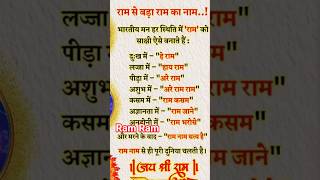 राम से बड़ा राम का नाम..!
भारतीय मन हर स्थिति में 'राम' को
साक्षी ऐसे बनाते हैं :
दुःख में - "हे राम"
लज्जा में - "हाय राम"
पीड़ा में - "अरे राम"
अशुभ में - "अरे राम राम"
कसम में - "राम कसम"
अज्ञानता में - "राम जाने"
अनहोनी में - "राम भरोसे"
Ram Ram
और मरने के बाद - "राम नाम सत्य है"
राम नाम से ही पूरी दुनिया चलती है।
जय श्री राम